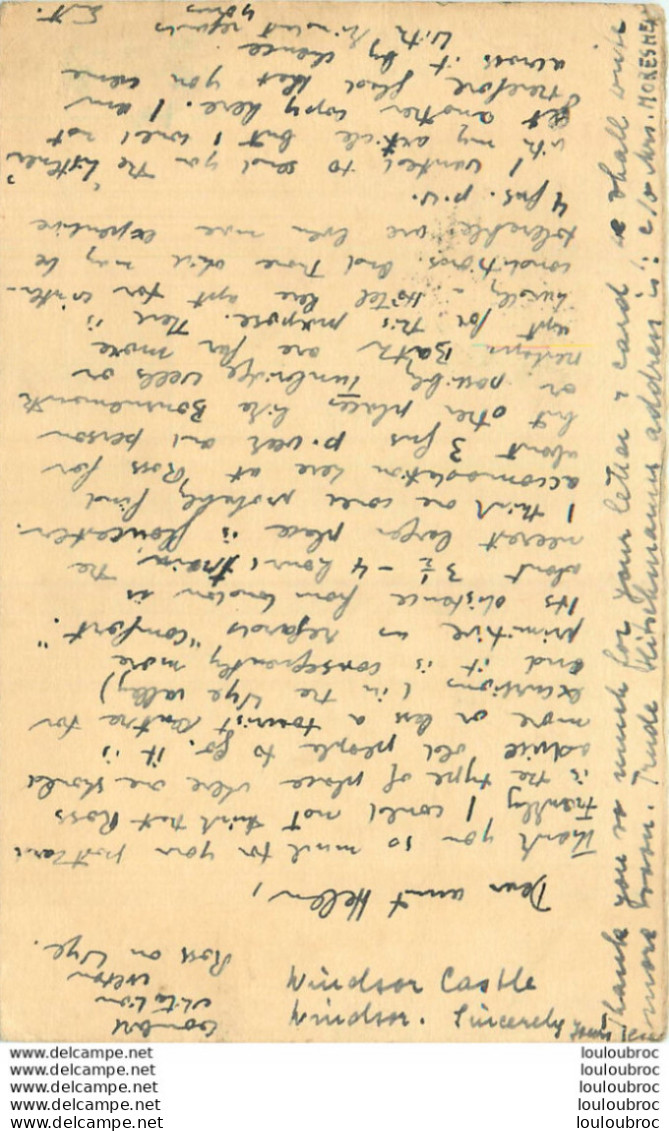 Wilton
Ross on Wye.
Dear aunt Helen,
Thank you so much for your postcard
Frankly I could not think that Ross
is the type of place where one should
advise old people to go. it is
more or less a tourist centre for
excursions (in the Wye valley)
and it is consequently more
primitive as regards "comfort".
Its distance from London is
about 3½ - 4 hours train, the
nearest larger place is Gloucester.
I think one could probably find
accomodation here at Ross for
about 3 gns p. week and person
but other places like Bournemouth
or possibly Tunbridge Wells or
perhaps Bath are far more
apt for this purpose. There is
hardly a Hotel here apt for winter-
conditions and those which may be
tolerable are even more expensive
4 gns. p.w.
I wanted to send you the "Listener"
with my article but I could not
get another copy here. I am
therefore glad that you came
across it by chance.
With kindest regards
yours
Windsor Castle
Windsor. Sincerely yours
Thank you so much for your letter & card we shall write
more soon. Trude Fleischmanns address is: c/o Mrs.
www.delcampe.net louloubroc
www.delcampe.net louloubroc
www.delcampe.net louloubroc
www.delcampe.net louloubroc
www.delcampe.net louloubroc